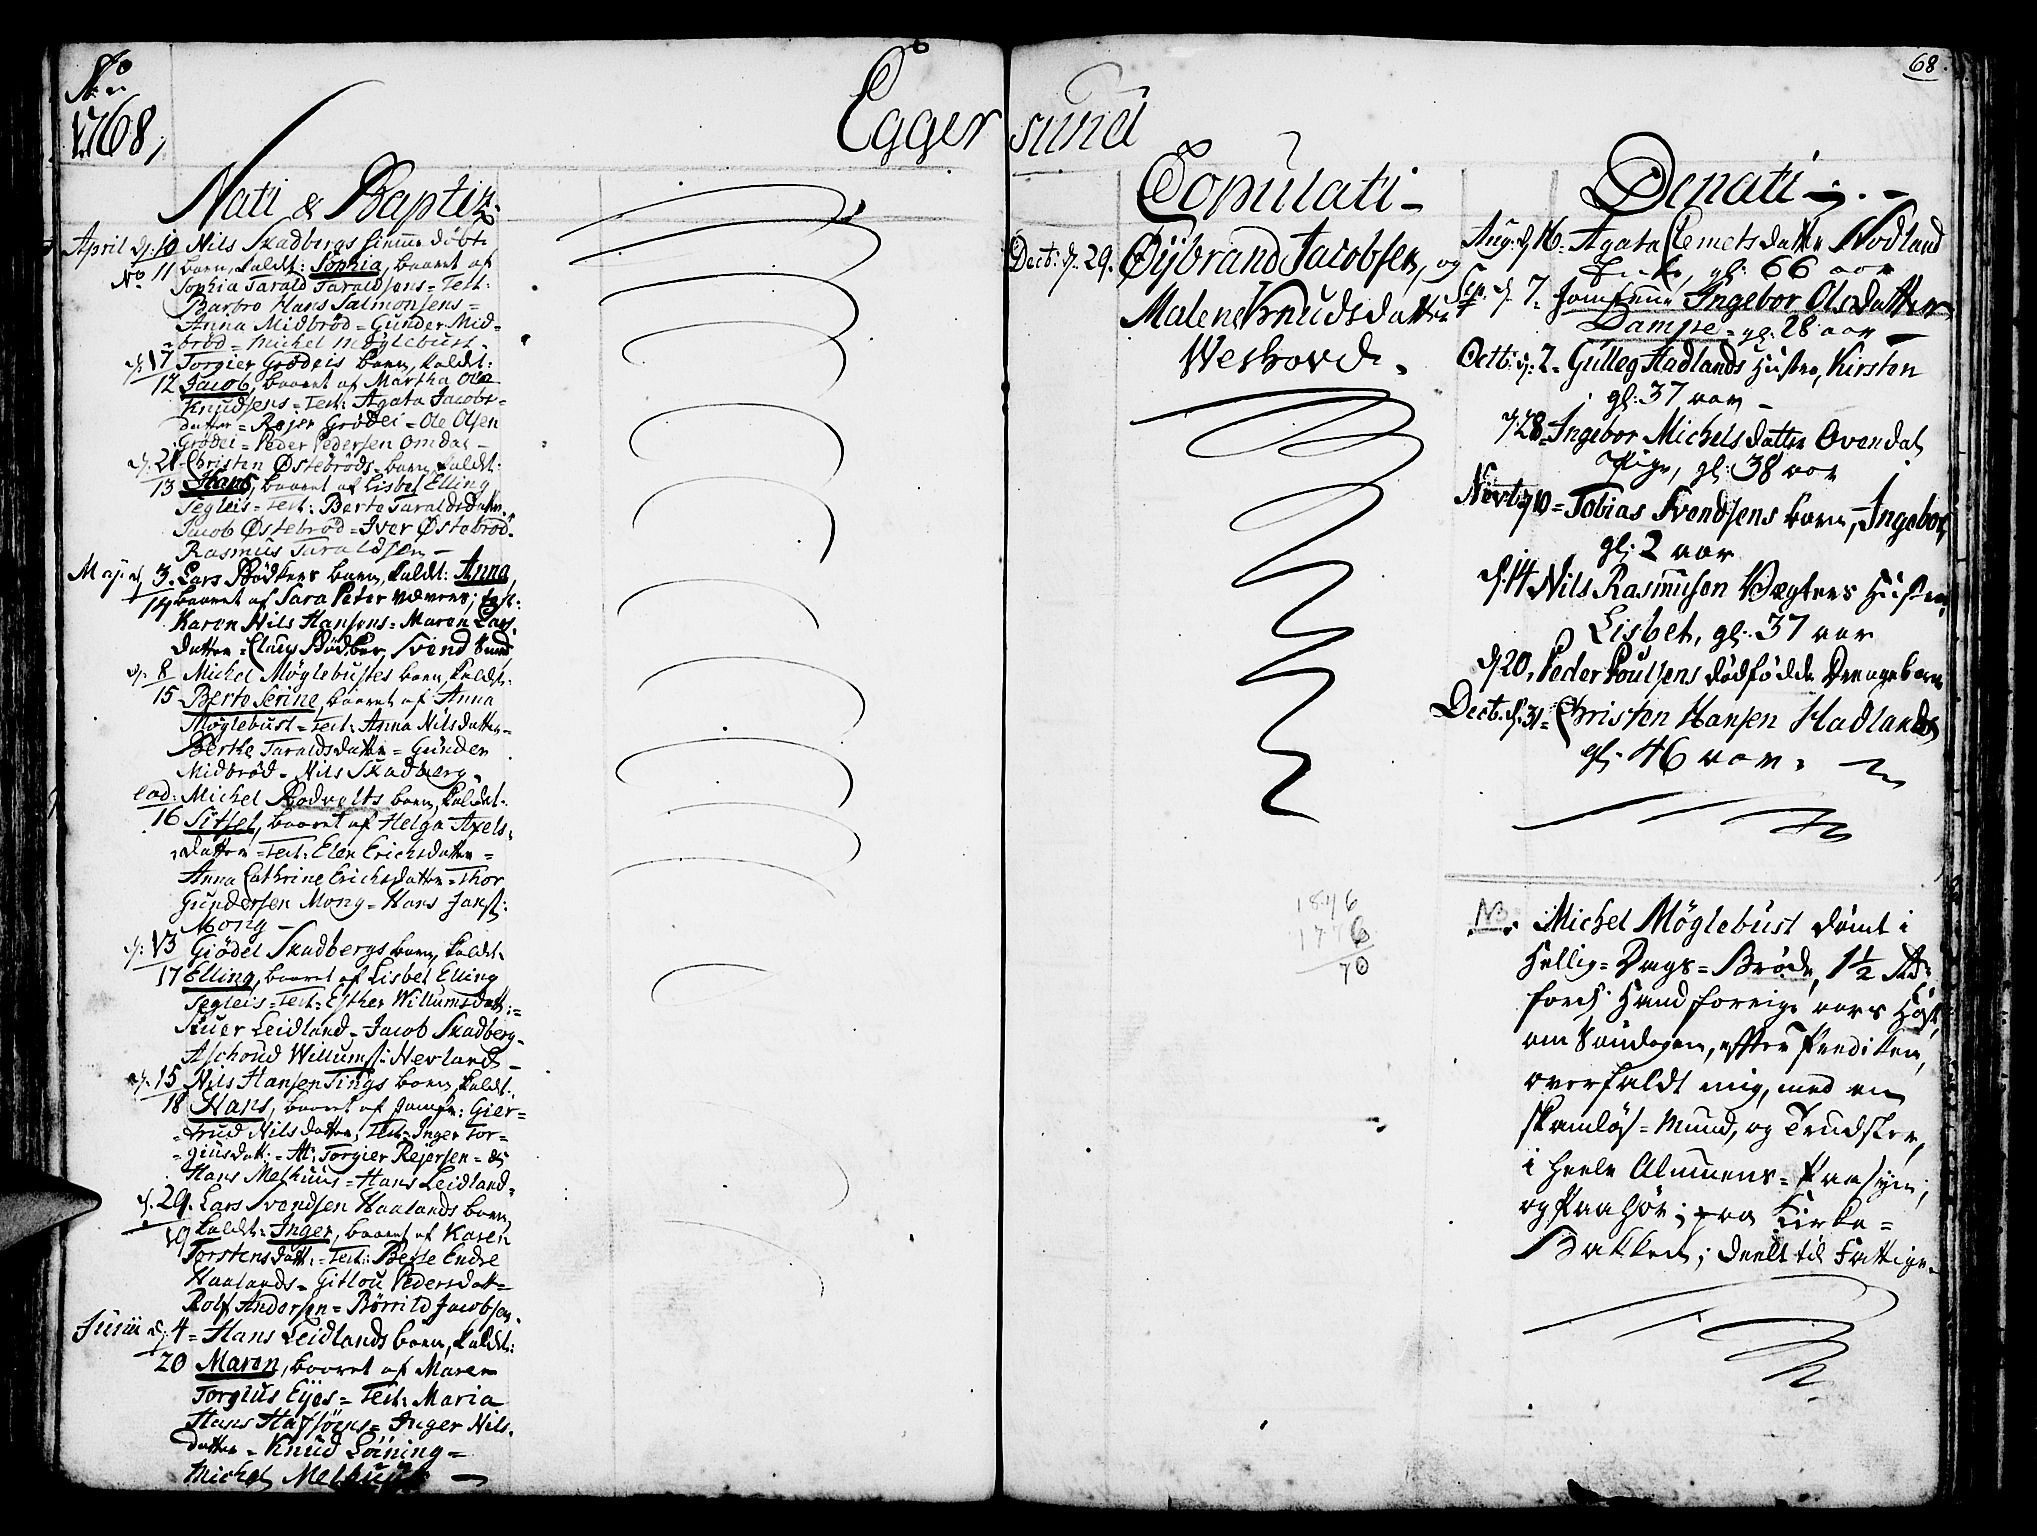 Ao
1768,
Eggersund
68.
Nati & Baptiz.
April d: 10 Nils Skadbergs hiemme døbte
No 11 barn, kaldt: Sophia, baaret af
Sophia Tarald Taraldsens = Test:
Barbro Hans Salmonsens =
Anna Midbrød = Gunder Mid-
brød = Michel Møglebust.
d: 17 Torgier Grødeis barn, kaldt:
12 Jacob, baaret af Martha Ole
Knudsens = Test: Agata Jacobs-
datter = Rejer Grødei = Ole Olsen
Grødei = Peder Pedersen Omdal -
d: 21 Christen Østebrøds barn, kaldt:
13 Hans, baaret af Lisbet Elling
Segleis = Test: Berte Taraldsdatter
Jacob Østebrød = Iver Østebrød.
Rasmus Taraldsen -
Maji d. 3. Lars Bødkers barn, kaldt: Anna,
14 baaret af Sara Peter Wævers; Test:
Karen Nils Hansens = Maren Lars
datter = Claus Bødker, Svend
d. 8 Michel Møglebustes barn, kaldt:
15 Berte Serine, baaret af Anna
Møglebust = Test: Anna Nilsdatter =
Berthe Taraldsdatter = Gunder
Midbrød = Nils Skadberg.
eod: Michel Rodvelts barn, kaldet:
16 Sitsel, baaret af Helga Axels-
datter = Test: Elen Erichsdatter =
Anna Cathrine Erichsdatter = Thor
Gundersen Mong = Hans Jans:
Mong -
d: 13 Giødel Skadbergs barn, kaldt:
17 Elling, baaret af Lisbet Elling
Segleis = Test: Esther Willumsdatt: =
Siuer Leidland = Jacob Skadberg -
Aschoud Willums: Nevland -
d. 15 Nils Hansen Tings barn, kaldt:
18 Hans, baaret af Jomfr: Gier-
trud Nils datter; Test: Inger Tor-
giusdatt: = Torgier Rejersen =
Hans Melhuus = Hans Leidland =
d. 29. Lars Svendsen Haalands barn,
19 kaldt: Inger, baaret af Karen
Torstensdatt: = Test: Berte Endre
Haalands = Gitlou Pedersdatt =
Rolf Andersen = Børrild Jacobsen.
Junii d. 4 = Hans Leidlands barn, kaldt:
20 Maren, baaret af Maren
Torgius Eyes = Test: Maria
Hans Hafsøens = Inger Nils-
datter = Knud Løining =
Michel Melhuus -
Copulati -
Decb: d. 29. Øjbrand Jacobsen, og
Malene Knudsdatter
Weshovd.
1846
1776
70
Denati -
Aug: d. 16 = Agata Clemetsdatter Nodland
Enke, gl: 66 aar
Sep: d. 7. Jomfrue Ingebor Olsdatter
Dampe = gl: 28 aar -
Octb: d: 2 = Gulleg Hadlands Hustru, Kirsten
gl: 37 aar -
d 28 = Ingebor Michelsdatter Ovendal
Pige, gl: 38 aar
Novb: d 10 = Tobias Svendsens barn, Ingebor,
gl: 2 aar
d. 14 Nils Rasmusen Vægters Hustru,
Lisbet, gl: 37 aar
d. 20, Peder Poulsens dødfødde Drengebarn
Decb: d. 31 = Christen Hansen Hadlands
gl: 46 aar.
NB. Michel Møglebust dømt i
Hellig = Dags = Brøde, 1½
fordi Hand forrige aars Høst,
om Søndagen, efter Prediken,
overfaldt mig, med en
skamløs = Mund, og Trudsler,
i heele Almuens = Paasyn,
og Paahør; paa Kirke =
Bakken; deelt til Fattige.